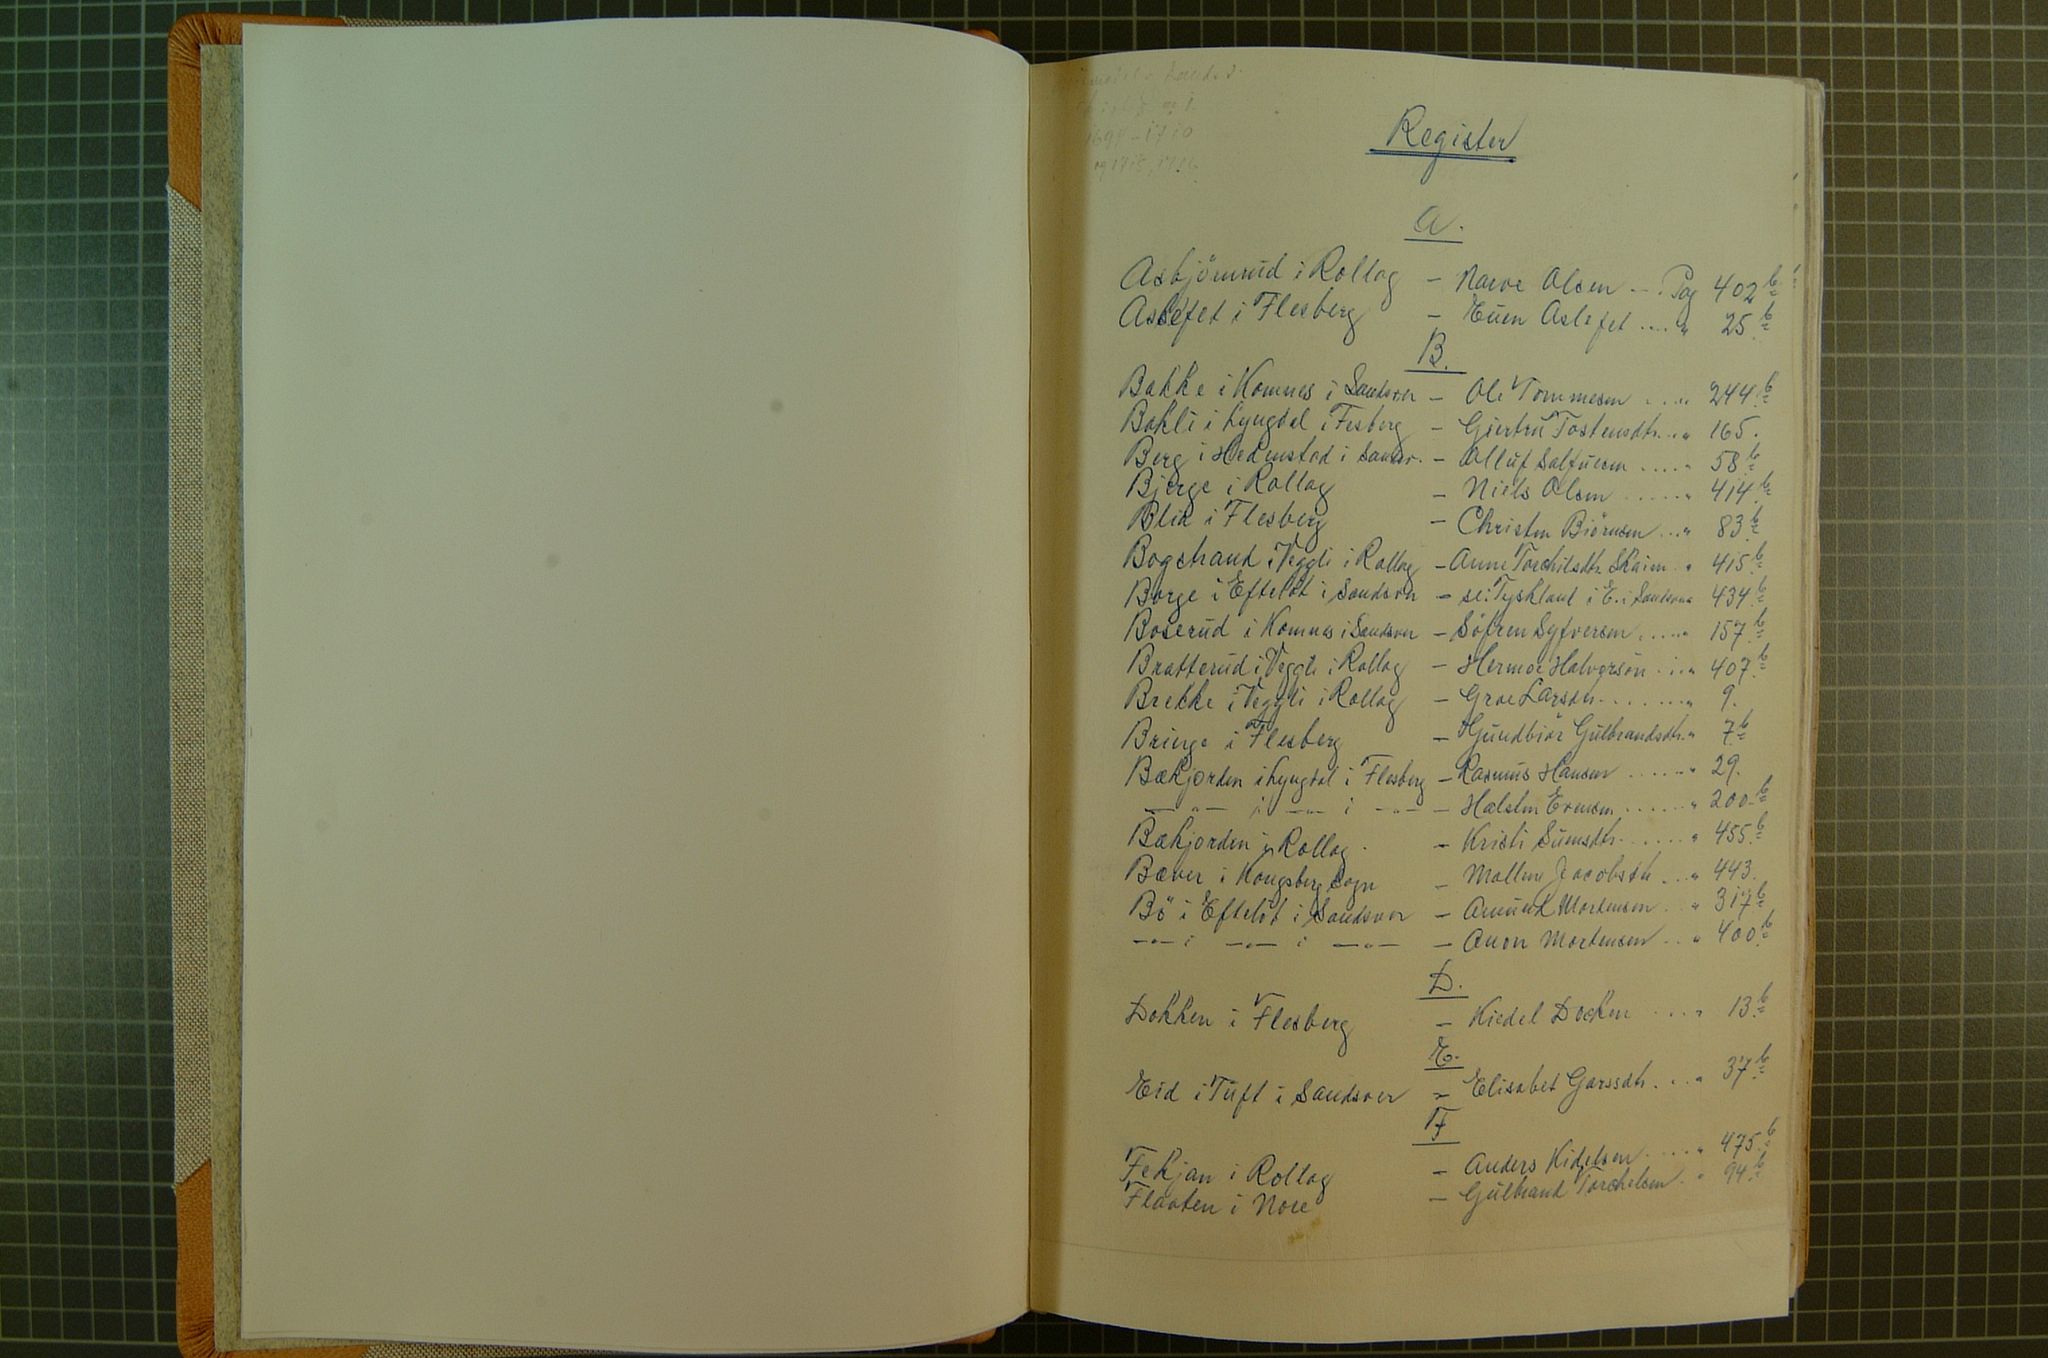 1694-1710
Register
A.
Asbjörnrud i Rollag - Narve Olsen - Pag 402 b
Aslefet i Flesberg - Euen Aslefet .... " 25 b
B.
Bakke i Komnes i Sandsver - Ole Tommesen .... " 244 b
Bakli i Lyngdal i Fesberg - Giertru Tostensdtr. .. " 165.
Berg i Hedenstad i Sandsv. - Olluf Salfuesen ..... " 58 b
Bjerge i Rollag - Niels Olsen ...... " 414 b
Blik i Flesberg - Christen Biörnsen ... " 83 b
Bogstrand i Veggli i Rollag - Anne Torchilsdtr. Skaien . " 415 b
Borge i Efteløt i Sandsver - se: Tyskland i E. i Sandsver " 434 b
Boserud i Komnes i Sandsver - Söfren Syfversen ..... " 157 b
Bratterud i Veggli i Rollag - Hermoe Halvorsön ... " 407 b
Brekke i Veggli i Rollag - Groe Larsdtr. ....... " 9.
Bringe i Flesberg - Gundbiör Gulbrandsdtr. " 7 b
Bækjorden i Lyngdal i Flesberg - Rasmus Hansen ...... " 29.
—"— i —"— i —"— - Halsten Evensen ...... " 200 b
Bækjorden i Rollag - Kristi Sumsdtr. ...... " 455 b
Bæver i Kongsberg Sogn - Mallene Jacobsdtr ... " 443.
Bö i Efteløt i Sandsver - Amund Mortensen .. " 317 b
—"— i —"— i —"— - Amon Mortensen .. " 400 b
D.
Dokken i Flesberg - Kiedel Docken .... " 13 b
E.
Eid i Tuft i Sandsver - Elisabet Garssdtr. ... " 37 b
F
Fekjan i Rollag - Anders Kidelsen ..... " 475 b
Flaaten i Nore - Gulbrand Torchelsen . " 94 b